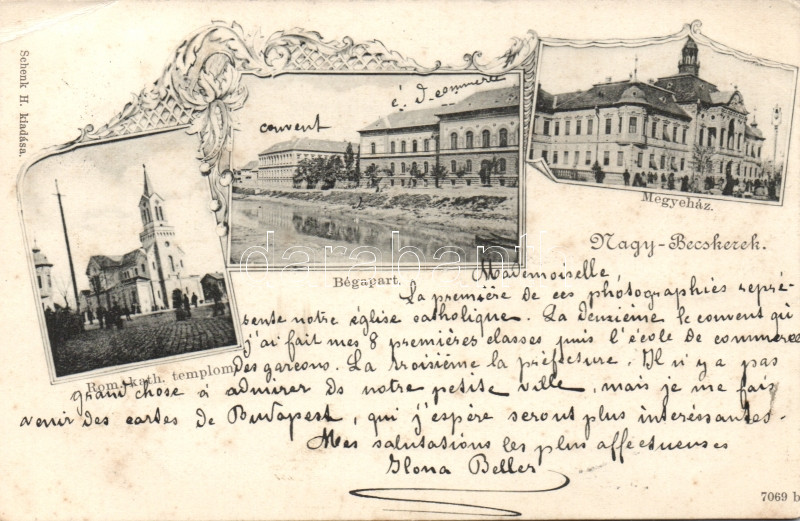 Schenk H. kiadása.
convent
é. d. commerce
Megyeház.
Nagy-Becskerek.
Bégapart.
Rom. kath. templom
darabanth
Mademoiselle
La première de ces photographies repré-
sente notre église catholique. La deuxième le convent où
j'ai fait mes 8 premières classes puis l'école de commerce
des garcons. La troisième la préfecture. Il n'y a pas
grand chose à admirer ds notre petite ville, mais je me fais
venir des cartes de Budapest, qui j'espère seront plus intéressantes.
Mes salutations les plus affectueuses
Ilona Beller
7069 b